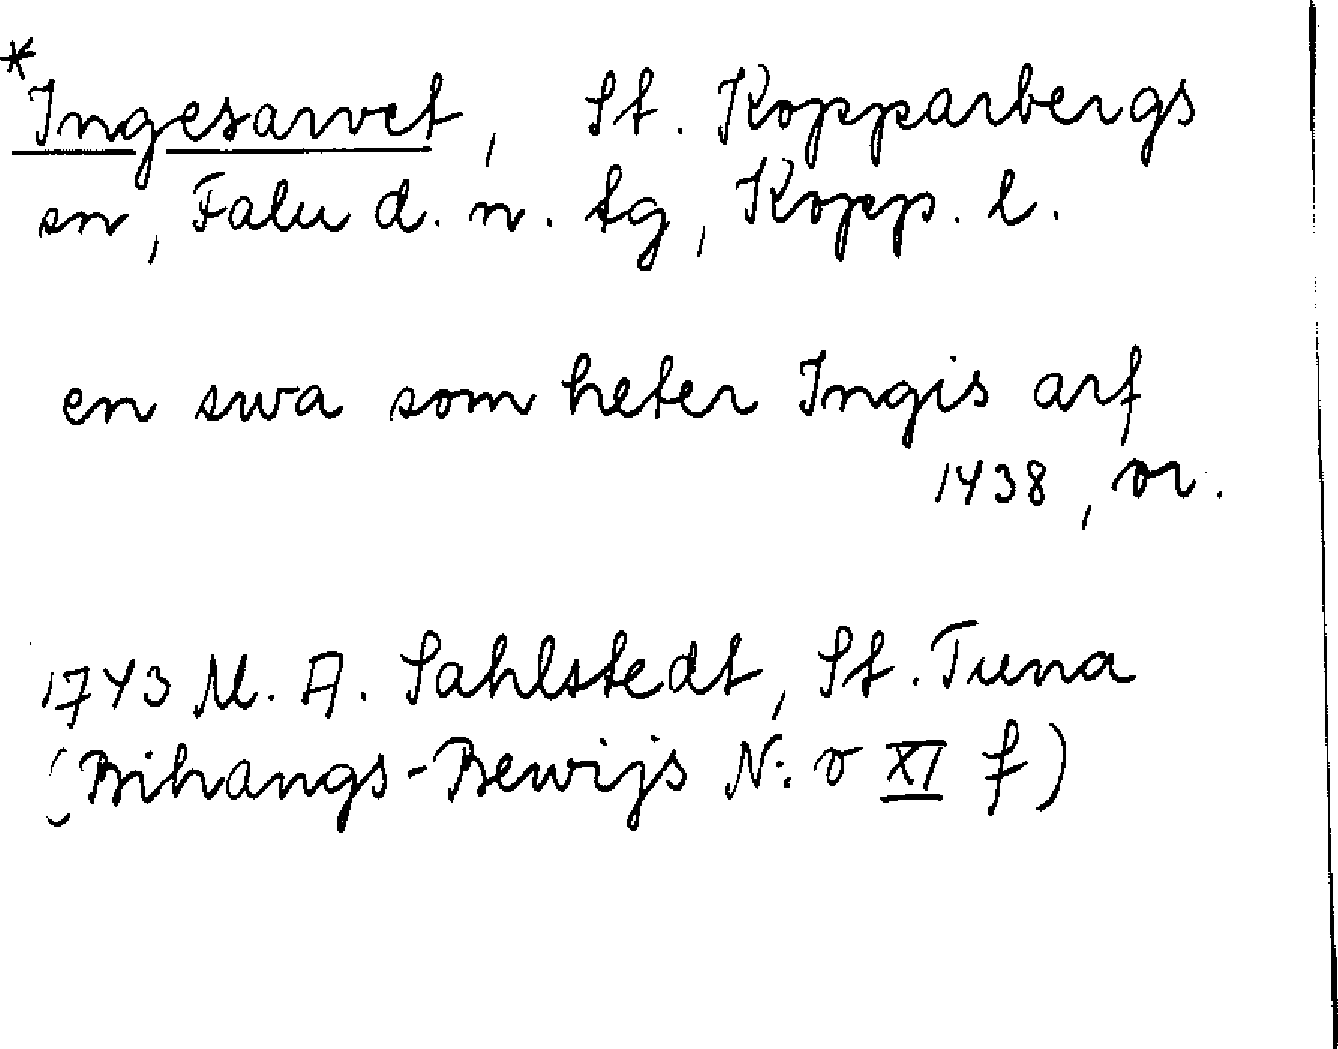 *Ingesarvet, St. Kopparbergs
sn, Falu d. n. tg, Kopp. l.
en swa som heter Ingis arf
1438, or.
1743 M. A. Sahlstedt, St. Tuna
(Bihangs-Bewijs N:o XI f)